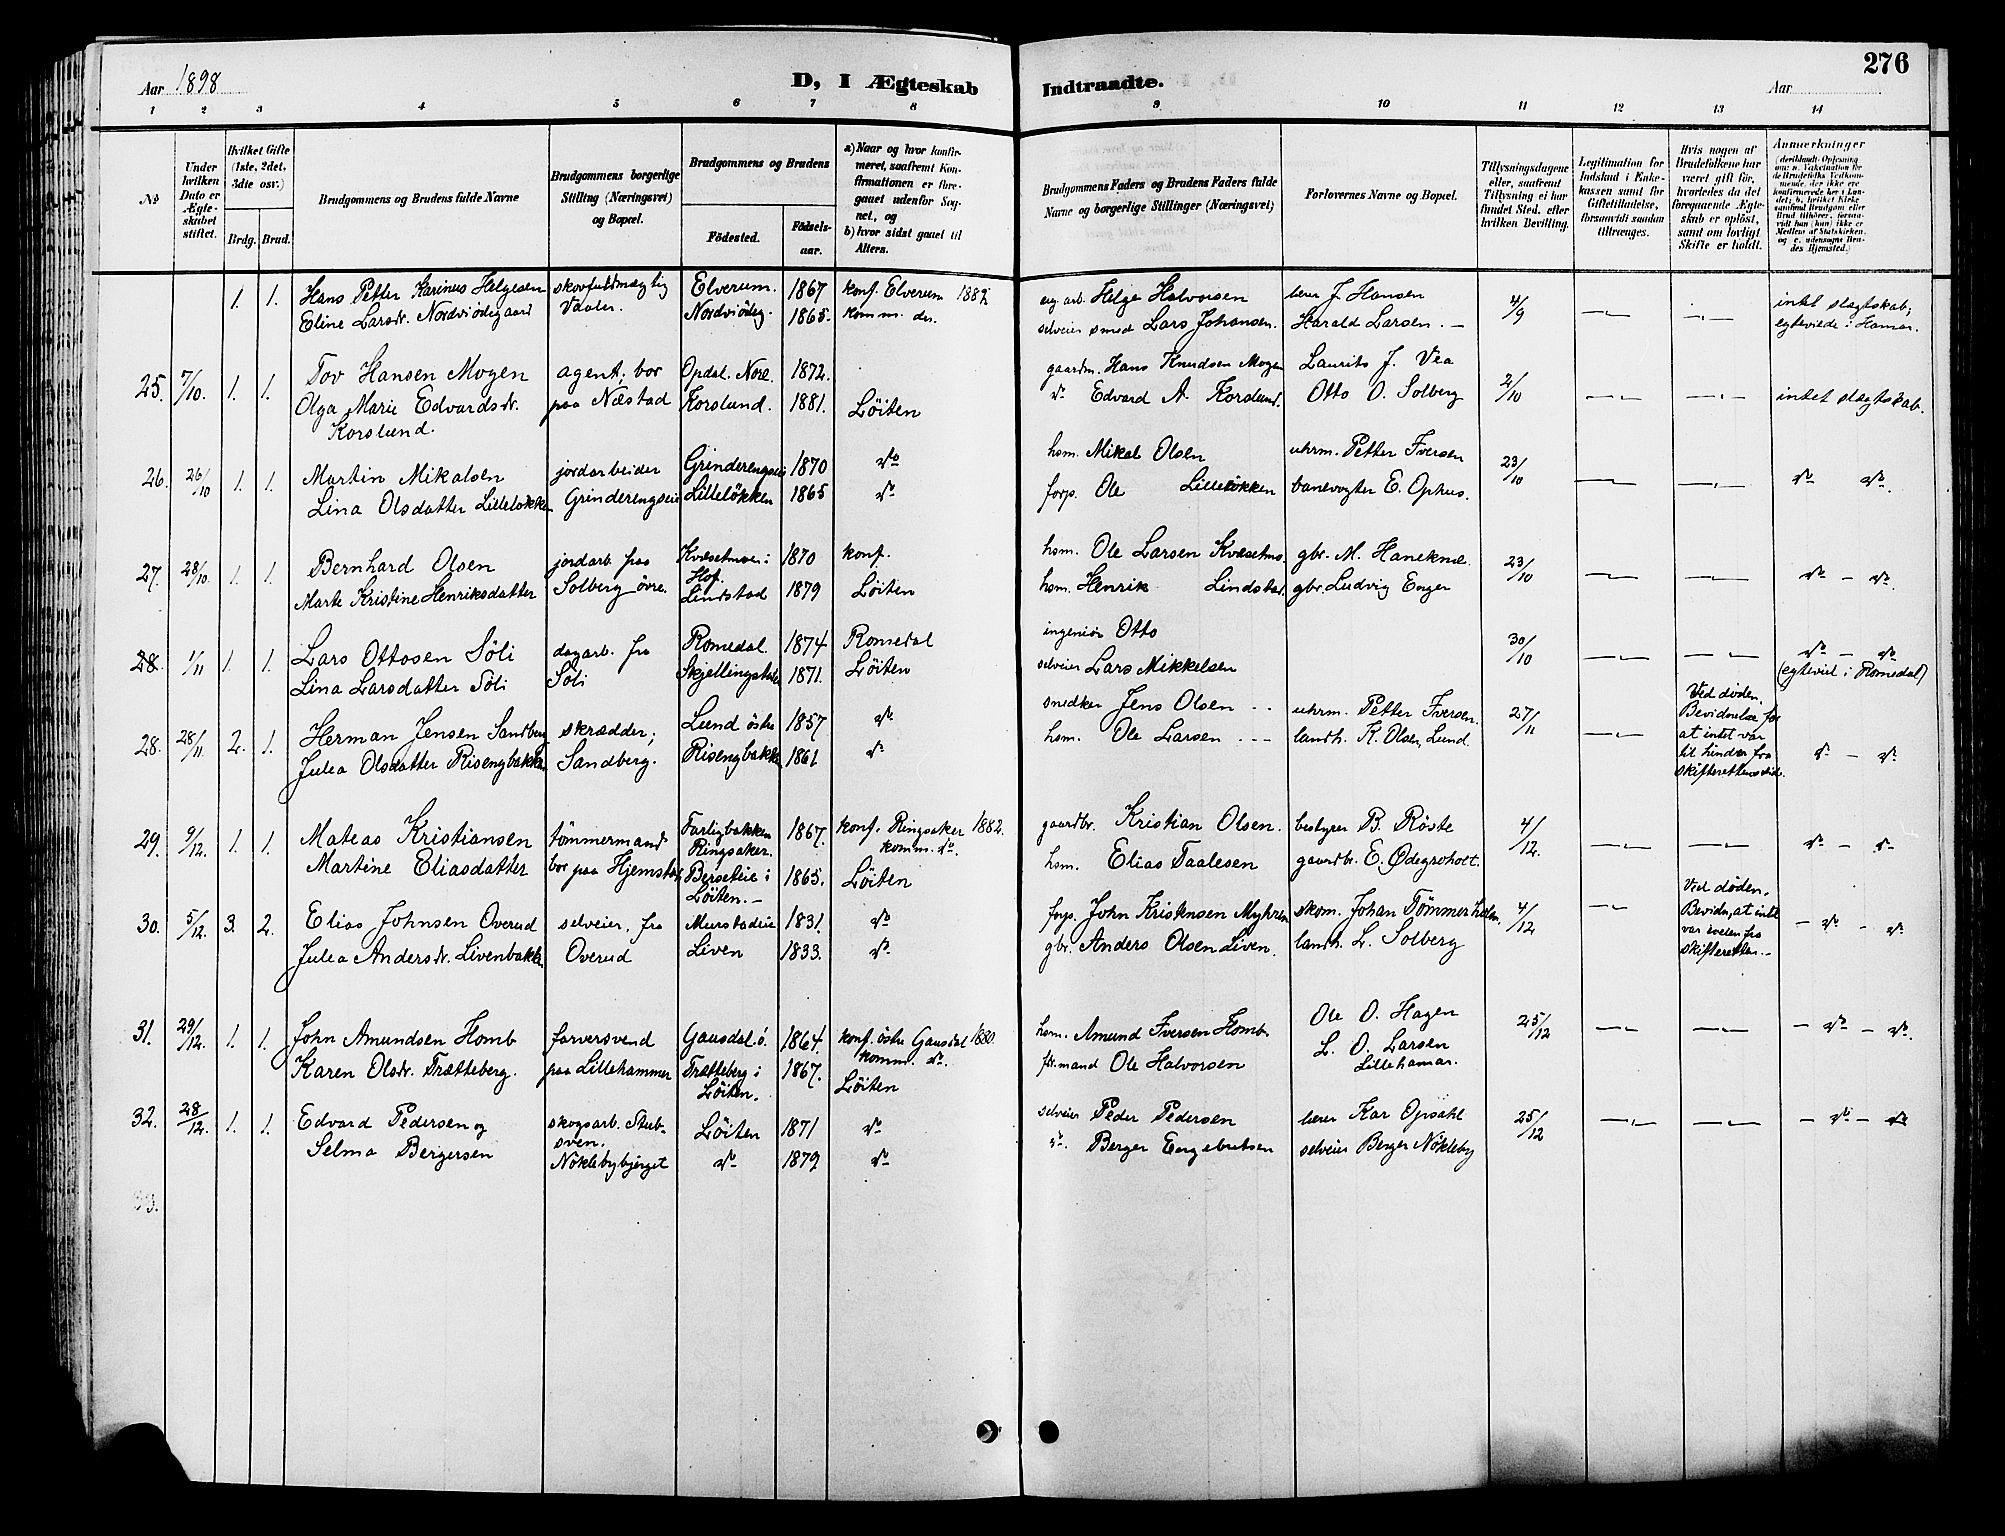 276
Aar 1898
D, I Ægteskab Indtraadte.
Aar
1 2 3 4 5 6 7 8 9 10 11 12 13 14
No
Under hvilken Dato er Ægteskabet stiftet.
Hvilket Gifte (1ste, 2det, 3dte osv.)
Brdg. Brud.
Brudgommens og Brudens fulde Navne
Brudgommens borgerlige Stilling (Næringsvei) og Bopæl.
Brudgommens og Brudens
Fødested.
Fødselsaar.
a) Naar og hvor konfirmeret, saafremt Konfirmationen er foregaaet udenfor Sognet, og
b) hvor sidst gaaet til Alters.
Brudgommens Faders og Brudens Faders fulde Navne og borgerlige Stillinger (Næringsvei)
Forlovernes Navne og Bopæl.
Tillysningsdagene eller, saafremt Tillysning ei har fundet Sted, efter hvilken Bevilling.
Legitimation for Indskud i Enkekassen samt for Giftetilladelse, forsaavidt saadan tiltrænges.
Hvis nogen af Brudefolkene har været gift før, hvorledes da det foregaaende Ægteskab er opløst, samt om lovligt Skifte er holdt.
Anmærkninger
1. 1. Hans Petter Karinus Helgesen skovfuldmægtig Elverum. 1867 konf. Elverum 1882 Helge Halvorsen lærer J. Hansen 4/9 intet slægtskab,
Eline Larsdr. Nordviødegaard Vaaler. Nordviødeg. 1865. komm. do. selveier smed Lars Johansen. Harald Larsen. – egteviede i Hamar.
25. 7/10. 1. 1. Tov Hansen Mogen agent. bor Opdal. Nore. 1872. gaardm. Hans Knudsen Mogen Laurits J. Vea 2/10 intet slægtskab.
Olga Marie Edvardsdr. paa Næstad Korslund. 1881. Løiten do. Edvard A. Korslund. Otto O. Solberg
Korslund.
26. 26/10 1. 1. Martin Mikalsen jordarbeider Grinderengseie 1870 do hsm. Mikal Olsen uhrm. Petter Iversen 23/10 do do.
Lina Olsdatter Lilleløkken Grinderengseie Lilleløkken 1865 do. forp. Ole Lilleløkken banevogter E. Ophus.
27. 28/10. 1. 1. Bernhard Olsen jordarb. paa Kvæsetmoen i Hof. 1870 konf. hsm. Ole Larsen Kvæsetmo. gbr. M. Haneknæ. 23/10 do – do.
Marte Kristine Henriksdatter Solberg øvre. Lindstad 1879 Løiten hsm. Henrik Lindstad. gbr. Ludvig Enger
28. 1/11 1. 1. Lars Ottosen Söli dagarb. fra Romedal 1874 Romedal ingeniør Otto 30/10 do – do
Lina Larsdatter Söli Söli 1871. Løiten selveier Lars Mikkelsen (egteviet i Romedal)
28. 28/11. 2. 1. Herman Jensen Sandberg skrædder; Lund østre 1857 do snedker Jens Olsen – – uhrm. Petter Iversen. 27/11 Ved døden. Bevidnelse for at intet var til hinder fra do – do.
Julea Olsdatter Risengbakken Sandberg. Risengbakken 1861 do hsm. Ole Larsen – – – landh. K. Olsen, Lund.
29. 9/12. 1. 1. Mateas Kristiansen tømmermand Farligbakken Ringsaker. 1867. konf. Ringsaker 1882. komm. do. gaardbr. Kristian Olsen. bestyrer B. Röste 4/12. do – do.
Martine Eliasdatter bor paa Hjemstad Berseteie i Løiten. – 1865. Løiten hsm. Elias Taalesen gaardbr. E. Ødegroholt.
30. 5/12. 3. 2. Elias Johnsen Overud selveier, fra Murstadeie 1831. do forp. John Kristensen Myhren skom. Johan Tömmerholen 4/12 Ved døden. Bevidn. at intet var iveien fra skifteretten. – – do – do.
Julea Andersdr. Livenbakken Overud Liven 1833. do. gbr. Anders Olsen Liven. landh. L. Solberg
31. 29/12. 1. 1. John Amundsen Homb farversvend Gausdal ö. 1864. konf. östre Gausdal 1880. komm. do. hsm. Amund Iversen Homb Ole O. Hagen 25/12 – do – do.
Karen Olsdr. Trætteberg. paa Lillehammer Trætteberg i Løiten. 1867. Løiten Ole Halvorsen L. O. Larsen Lillehamar.
32. 28/12. 1. 1. Edvard Pedersen og skogsarb. Stubsven. Løiten 1871 do selveier Peder Pedersen lærer Kar Opsahl 25/12 – do – do
Selma Bergersen Nöklebybjerget do 1879 do do. Berger Engebretsen selveier Berger Nökleby
33.